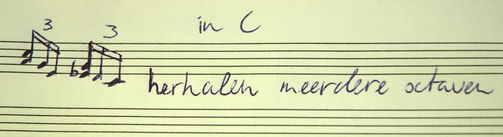 in C
3 3
herhalen meerdere octaven